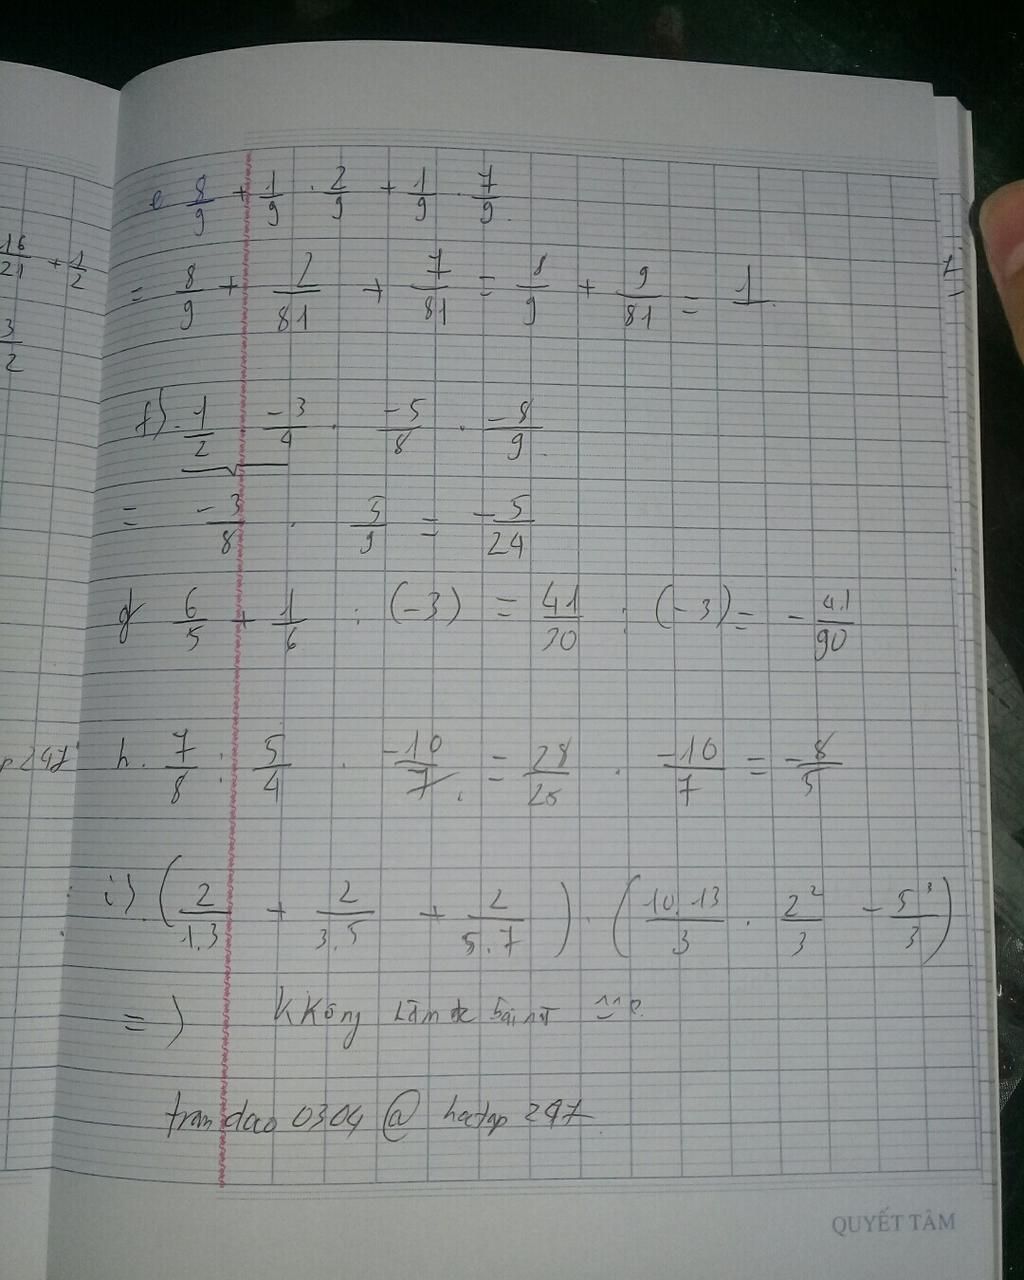 16/21 + 1/2
3/2
e 8/9 + 1/9 . 2/9 + 1/9 . 7/9
= 8/9 + 2/81 + 7/81 = 8/9 + 9/81 = 1
f) 1/2 . -3/4 . -5/8 . -8/9
= -3/8 . 5/9 = -5/24
g 6/5 + 1/6 : (-3) = 41/30 : (-3) = -41/90
h. 7/8 : 5/4 . -10/7 = 28/25 . -10/7 = -8/5
i) (2/1.3 + 2/3.5 + 2/5.7) . (10.13/3 . 2²/3 - 5³/3)
=) Không làm đc bài
trandao 0304 @ hoctap 247
QUYẾT TÂM